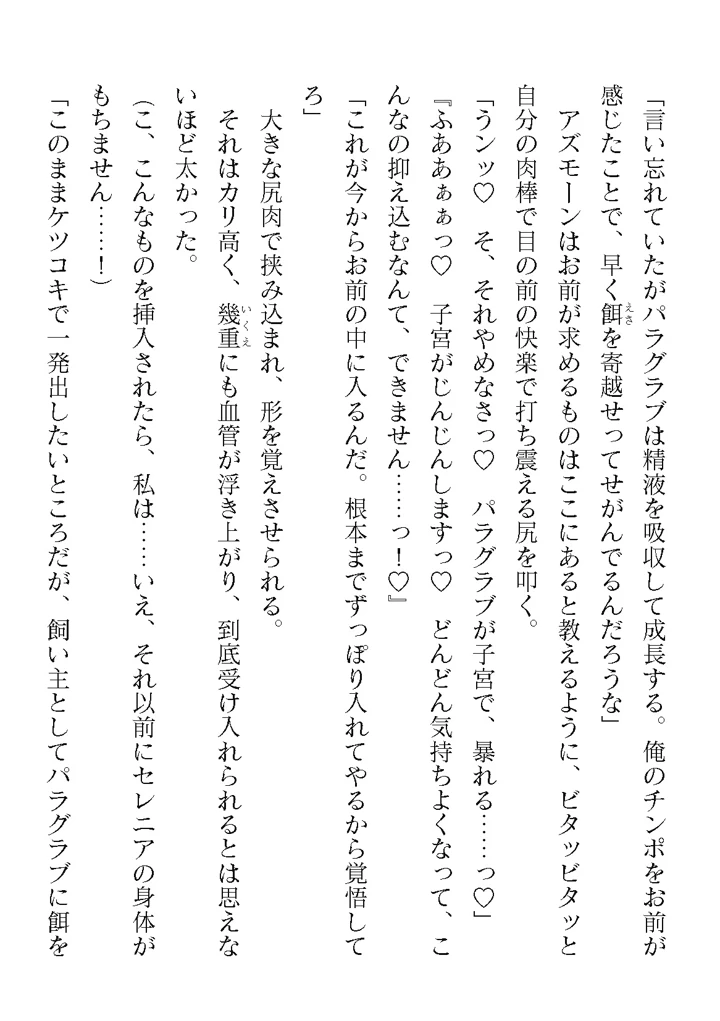 「言い忘れていたがパラグラブは精液を吸収して成長する。俺のチンポをお前が
感じたことで、早く餌を寄越せってせがんでるんだろうな」
えさ
　アズモーンはお前が求めるものはここにあると教えるように、ビタッビタッと
自分の肉棒で目の前の快楽で打ち震える尻を叩く。
「うンッ♡　そ、それやめなさっ♡　パラグラブが子宮で、暴れる……っ♡」
『ふああぁぁっ♡　子宮がじんじんしますっ♡　どんどん気持ちよくなって、こ
んなの抑え込むなんて、できません……っ！♡』
「これが今からお前の中に入るんだ。根本までずっぽり入れてやるから覚悟して
ろ」
　大きな尻肉で挟み込まれ、形を覚えさせられる。
　それはカリ高く、幾重にも血管が浮き上がり、到底受け入れられるとは思えな
いくえ
いほど太かった。
（こ、こんなものを挿入されたら、私は……いえ、それ以前にセレニアの身体が
もちません……！）
「このままケツコキで一発出したいところだが、飼い主としてパラグラブに餌を